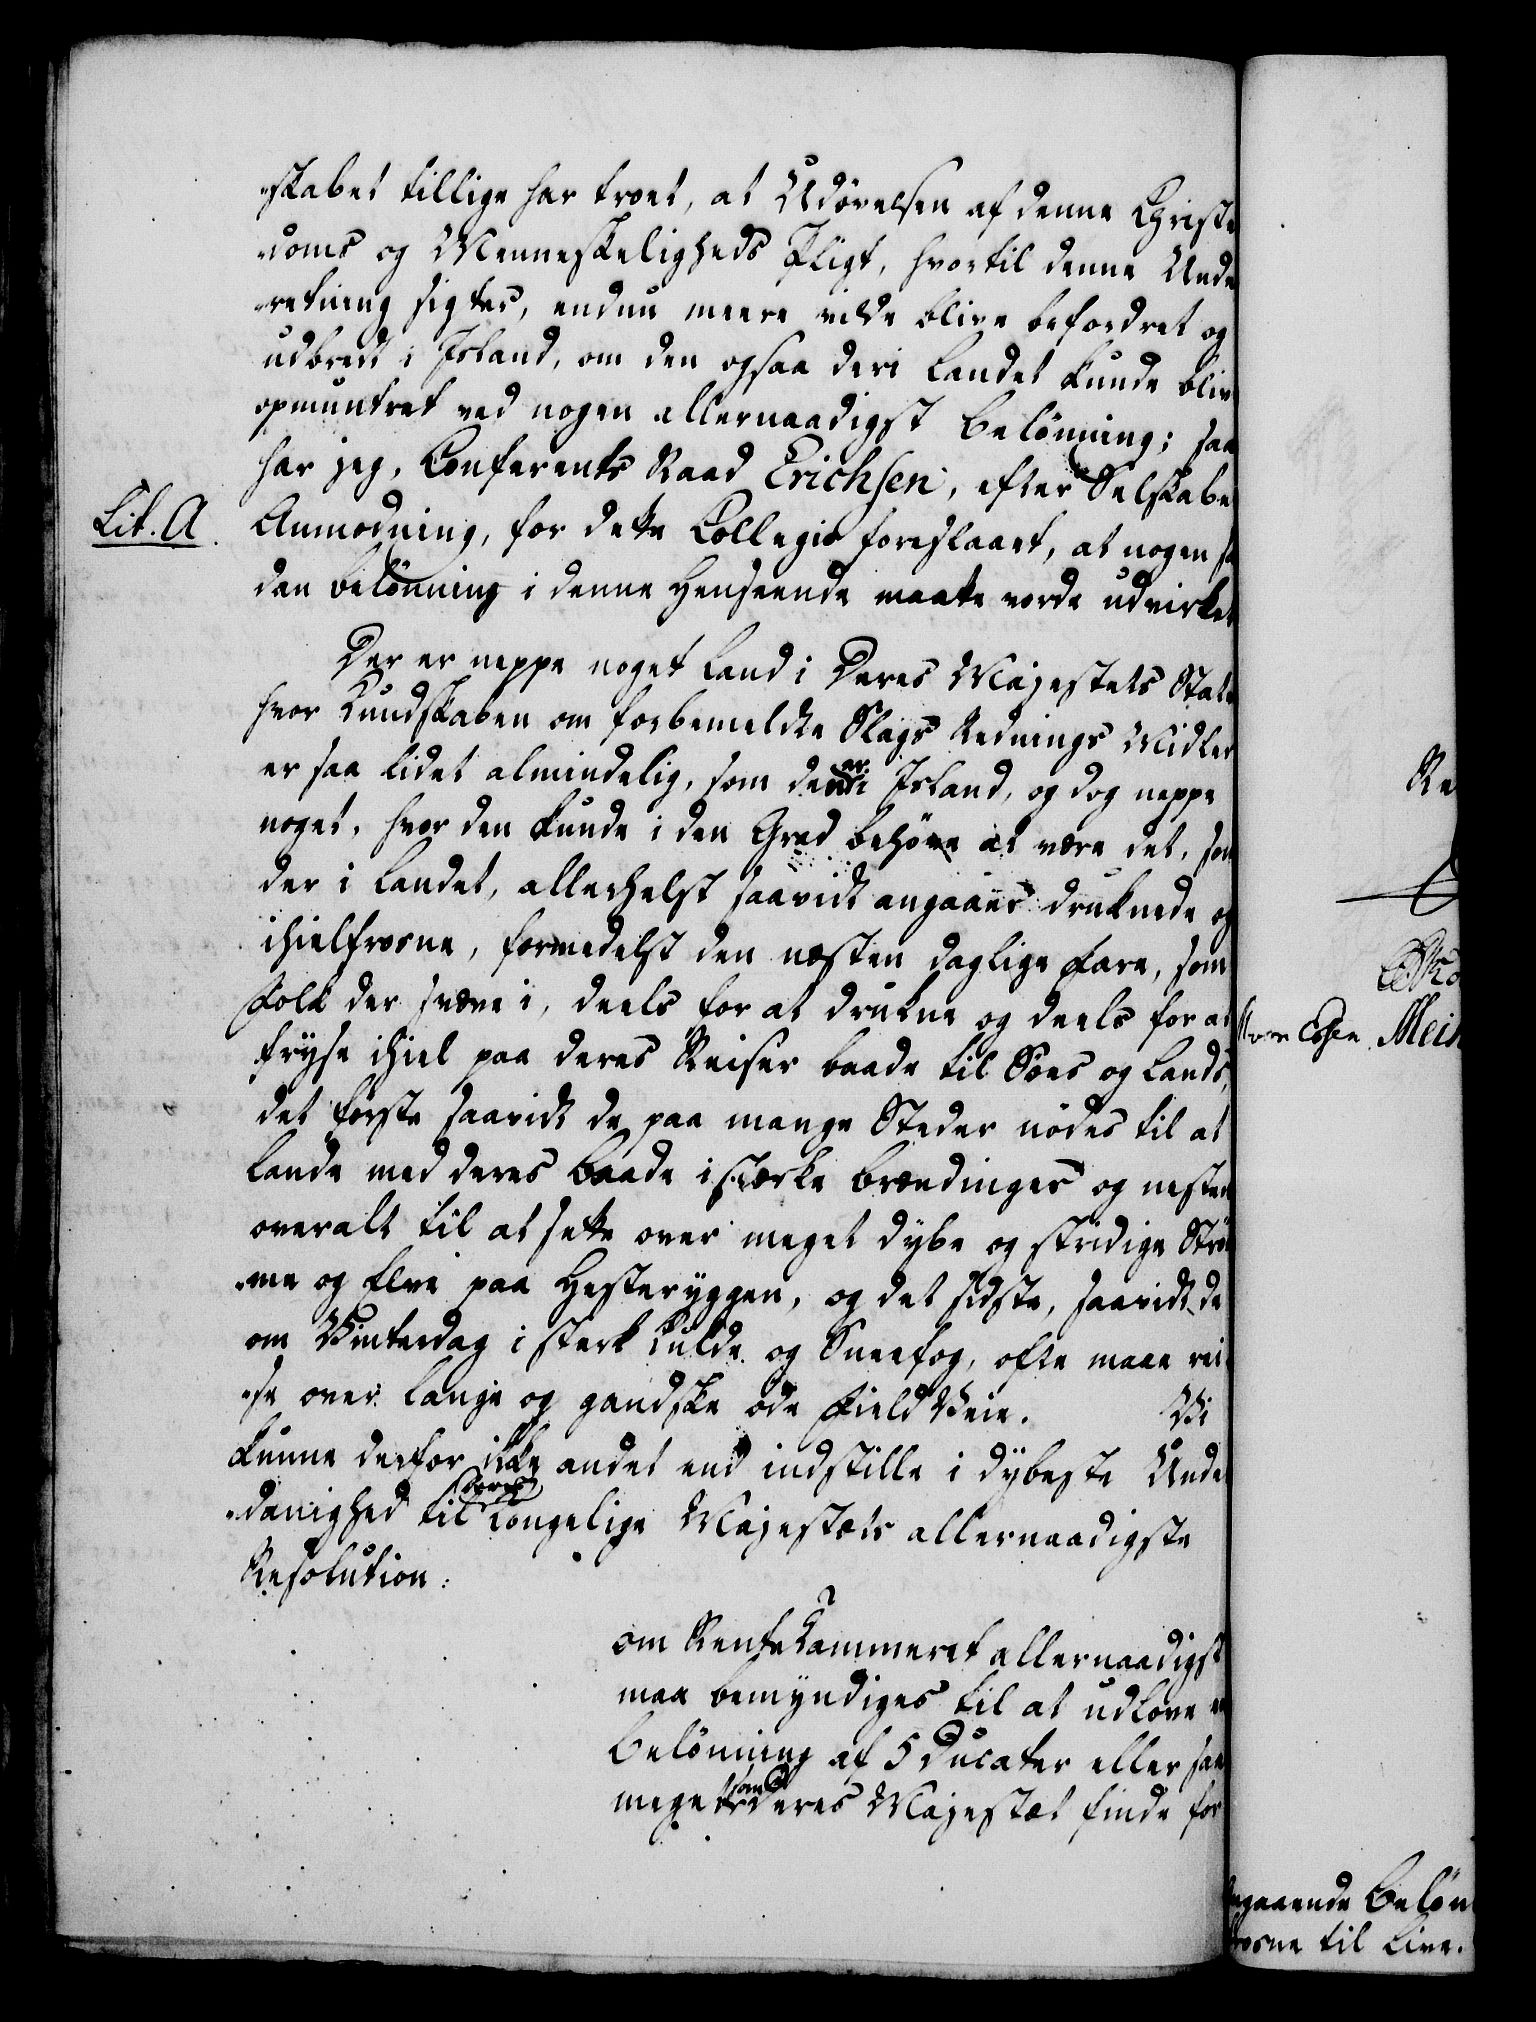 "skabet tillige har troet, at Udøvelsen af denne Christe
"doms og Menneskeligheds Pligt, hvortil denne Unde
"retning sigter, endnu meere vilde blive befordret og
udbredt i Island, om den ogsaa der i Landet kunde bliv
opmuntret ved nogen allernaadigst Belönning; saa
har jeg, Conferents Raad Erichsen, efter Selskabe
Lit. A. Anmodning, for dette Collegio foreslaaet, at nogen sa
dan Belönning i denne Henseende maatte vorde udvirket
Der er neppe noget Land i Deres Majestets State
hvor Kundskaben om forbemeldte Slags Rednings Midler
er saa lidet almindelig, som den er i Island, og dog neppe
noget, hvor den kunde i den Grad behöve at være det, som
der i Landet, allerhelst saavidt angaaer druknede og
ihielfrosne, formedelst den næsten daglige Fare, som
Folk der svæve i, deels for at drukne og deels for at
fryse ihiel paa deres Reiser baade til Söes og Lands,
det förste saavidt de paa mange Steder nödes til at
lande med deres Baade i stærke Brændinger og nesten
overalt til at sette over meget dybe og stridige Strö
"me og Elve paa Hesteryggen, og det sidste, saavidt de
om Vinterdag i sterk Kulde og Sneefog, ofte maae rei
"se over lange og gandske öde Field Veie. Vi
kunne derfor ikke andet end indstille i dybeste Unde
"danighed til Deres Kongelige Majestæts allernaadigste
Resolution:
om RenteKammeret allernaadigst
maa bemyndiges til at udlove en
Belönning af 5 Ducater eller saa
meget som Deres Majestæt finde for
Re
Meis
ngaaende Belön
frosne til Live.